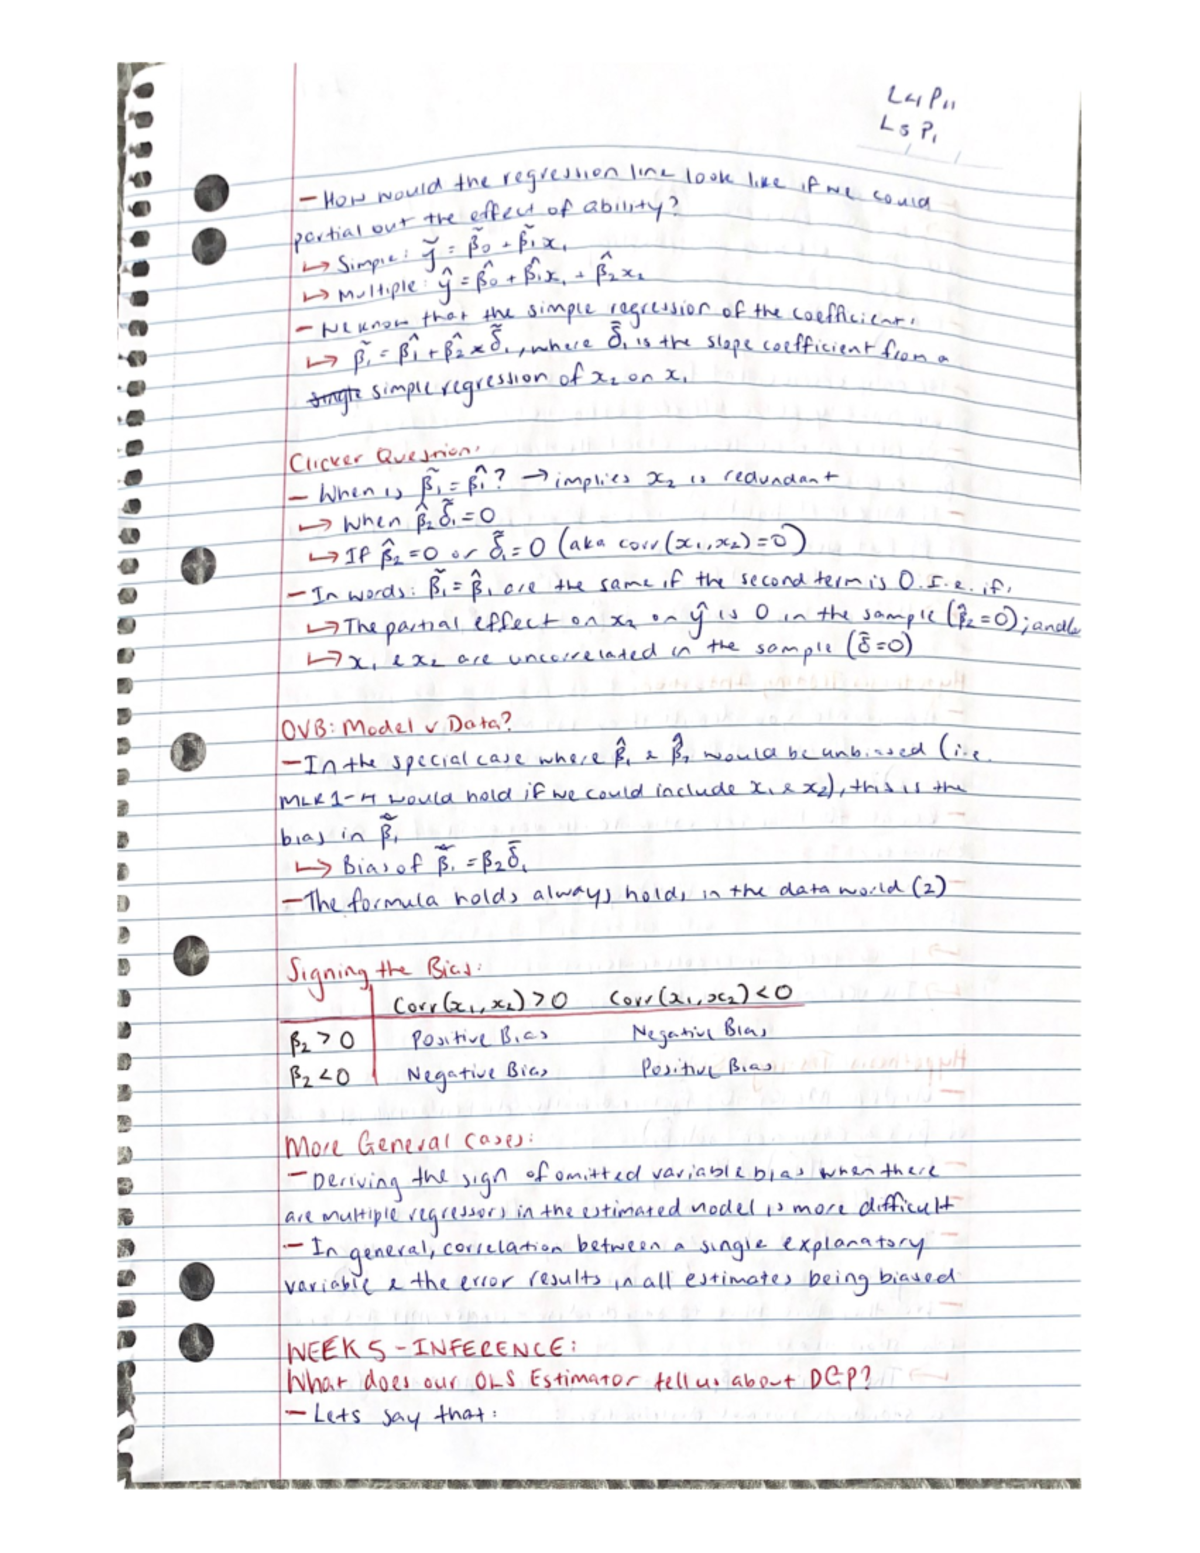 L4 P11
L5 P1
– How would the regression line look like if we could
partial out the effect of ability?
↳ Simple: ỹ = β̃0 + β̃1x1
↳ Multiple: ŷ = β̂0 + β̂1x1 + β̂2x2
– We know that the simple regression of the coefficient:
↳ β̃1 = β̂1 + β̂2 × δ̃1, where δ̃1 is the slope coefficient from a
single simple regression of x2 on x1
Clicker Question:
– When is β̃1 = β̂1? → implies x2 is redundant
↳ When β̂2 δ̃1 = 0
↳ If β̂2 = 0 or δ̃1 = 0 (aka corr(x1, x2) = 0)
– In words: β̃1 = β̂1 are the same if the second term is 0. I.e. if:
↳ The partial effect on x2 on ŷ is 0 in the sample (β̂2 = 0); and/or
↳ x1 & x2 are uncorrelated in the sample (δ̃ = 0)
OVB: Model v Data?
– In the special case where β̂1 & β̂2 would be unbiased (i.e.
MLR 1-4 would hold if we could include x1 & x2), this is the
bias in β̃1
↳ Bias of β̃1 = β2 δ̃1
– The formula holds always holds in the data world (2)
Signing the Bias:
Corr(x1, x2) > 0 Corr(x1, x2) < 0
β2 > 0 Positive Bias Negative Bias
β2 < 0 Negative Bias Positive Bias
More General Cases:
– Deriving the sign of omitted variable bias when there
are multiple regressors in the estimated model is more difficult
– In general, correlation between a single explanatory
variable & the error results in all estimates being biased
WEEK 5 - INFERENCE:
What does our OLS Estimator tell us about DGP?
– Lets say that: